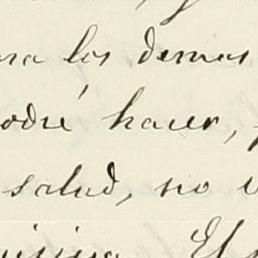 los demas
podré hacer,
salud, no
El